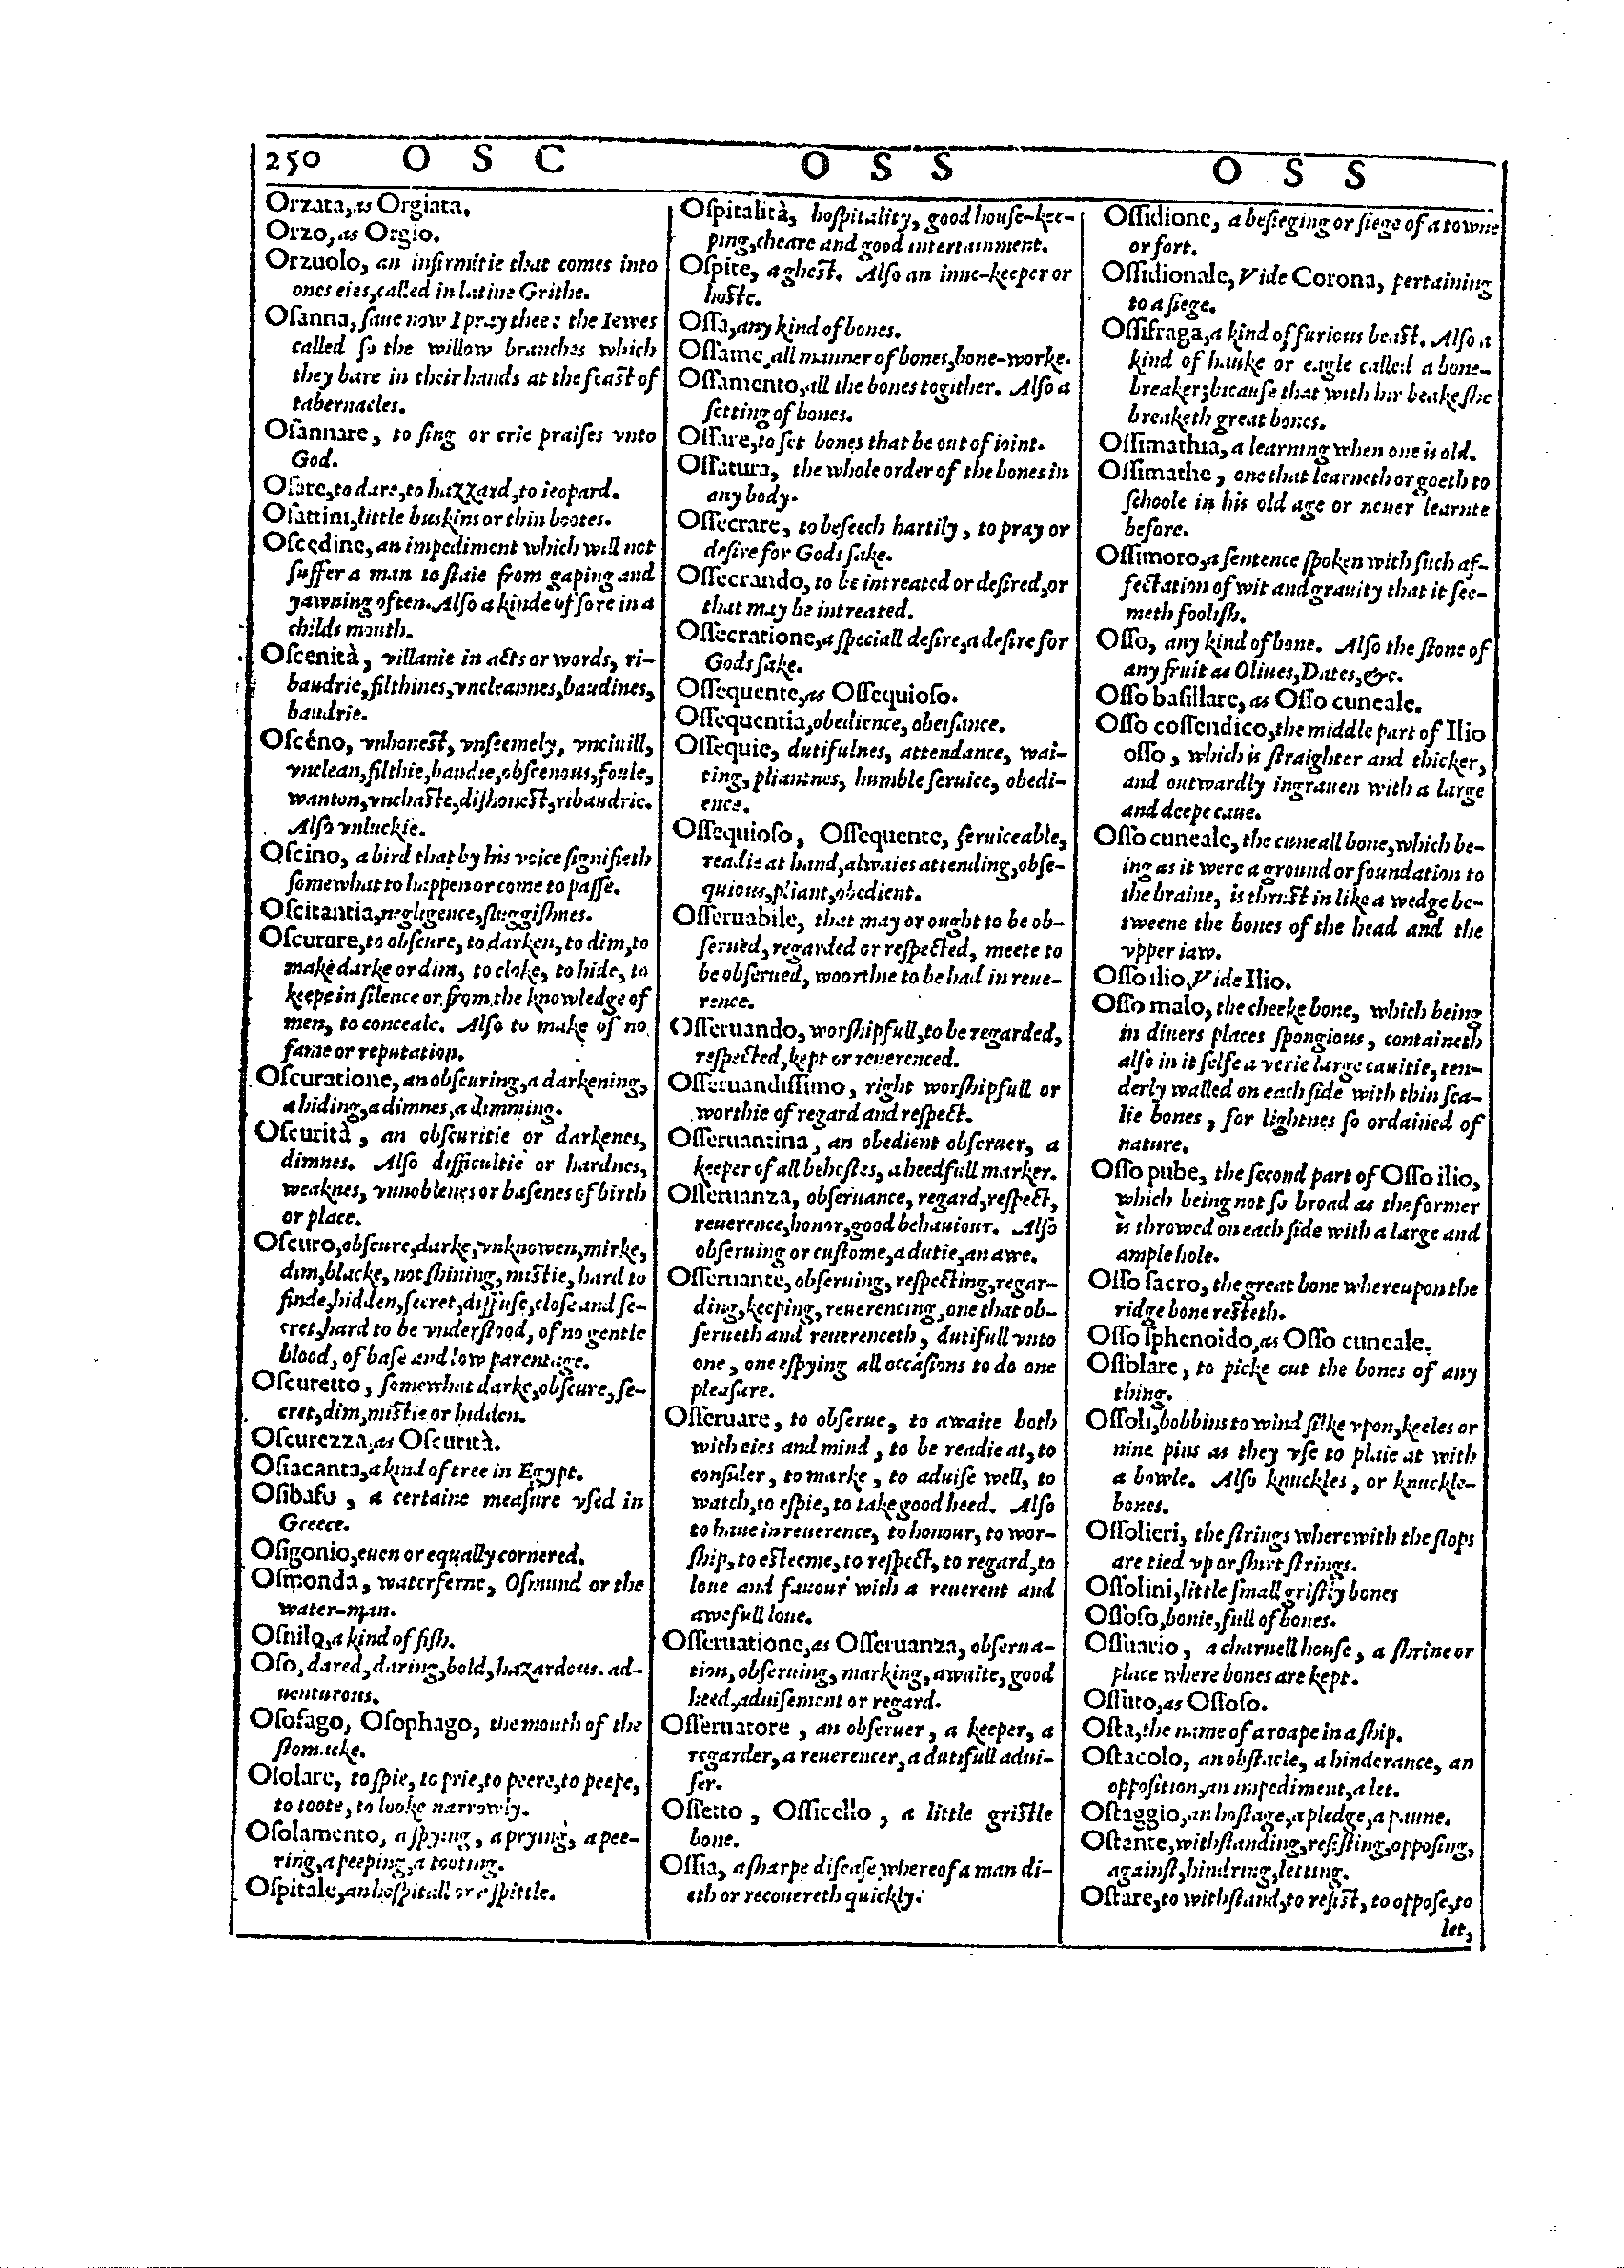 250 O S C
O S S
O S S
Orzata, as Orgiata.
Orzo, as Orgio.
Orzuolo, an infirmitie that comes into
ones eies, called in latine Grithe.
Oſanna, ſaue now I pray thee: the Iewes
called ſo the willow branches which
they bare in their hands at the feaſt of
tabernacles.
Oſannare, to ſing or crie praiſes vnto
God.
Oſare, to dare, to hazzard, to ieopard.
Oſattini, little buskins or thin bootes.
Oſcędine, an impediment which will not
ſuffer a man to ſtaie from gaping and
yawning often. Alſo a kinde of ſore in a
childs mouth.
Oſcenità, villanie in acts or words, ri-
baudrie, filthines, vncleannes, baudines,
baudrie.
Oſcéno, vnhoneſt, vnſeemely, vnciuill,
vnclean, filthie, baudie, obſcenous, foule,
wanton, vnchaſte, diſhoneſt, ribaudrie.
Alſo vnluckie.
Oſcino, a bird that by his voice ſignifieth
ſomewhat to happen or come to paſſe.
Oſcitantia, negligence, ſluggiſhnes.
Oſcurare, to obſcure, to darken, to dim, to
make darke or dim, to cloke, to hide, to
keepe in ſilence or from the knowledge of
men, to conceale. Alſo to make of no
fame or reputation.
Oſcuratione, an obſcuring, a darkening,
a hiding, a dimnes, a dimming.
Oſcurità, an obſcuritie or darkenes,
dimnes. Alſo difficultie or hardnes,
weaknes, vnnoblenes or baſenes of birth
or place.
Oſcuro, obſcure, darke, vnknowen, mirke,
dim, blacke, not ſhining, miſtie, hard to
finde, hidden, ſecret, diffuſe, cloſe and ſe-
cret, hard to be vnderſtood, of no gentle
blood, of baſe and low parentage.
Oſcuretto, ſomewhat darke, obſcure, ſe-
cret, dim, miſtie or hidden.
Oſcurezza, as Oſcurità.
Oſiacanta, a kind of tree in Egypt.
Oſibafo, a certaine meaſure vſed in
Greece.
Oſigonio, euen or equally cornered.
Oſmonda, waterferne, Oſmund or the
water-man.
Oſnilo, a kind of fiſh.
Oſo, dared, daring, bold, hazardous. ad-
uenturous.
Oſofago, Oſophago, the mouth of the
ſtomacke.
Oſolare, to ſpie, to prie, to peere, to peepe,
to toote, to looke narrowly.
Oſolamento, a ſpying, a prying, a pee-
ring, a peeping, a tooting.
Oſpitale, an hoſpitall or eſpittle.
Oſpitalità, hoſpitality, good houſe-kee-
ping, cheare and good intertainment.
Oſpite, a gheſt. Alſo an inne-keeper or
hoſte.
Oſſa, any kind of bones.
Oſſame, all manner of bones, bone-worke.
Oſſamento, all the bones togither. Alſo a
ſetting of bones.
Oſſare, to ſet bones that be out of ioint.
Oſſatura, the whole order of the bones in
any body.
Oſſecrare, to beſeech hartily, to pray or
deſire for Gods ſake.
Oſſecrando, to be intreated or deſired, or
that may be intreated.
Oſſecratione, a ſpeciall deſire, a deſire for
Gods ſake.
Oſſequente, as Oſſequioſo.
Oſſequentia, obedience, obeiſance.
Oſſequie, dutifulnes, attendance, wai-
ting, pliantnes, humble ſeruice, obedi-
ence.
Oſſequioſo, Oſſequente, ſeruiceable,
readie at hand, alwaies attending, obſe-
quious, pliant, obedient.
Oſſeruabile, that may or ought to be ob-
ſerued, regarded or reſpected, meete to
be obſerued, woorthie to be had in reue-
rence.
Oſſeruando, worſhipfull, to be regarded,
reſpected, kept or reuerenced.
Oſſeruandiſſimo, right worſhipfull or
worthie of regard and reſpect.
Oſſeruantina, an obedient obſeruer, a
keeper of all beheſtes, a heedfull marker.
Oſſeruanza, obſeruance, regard, reſpect,
reuerence, honor, good behauiour. Alſo
obſeruing or cuſtome, a dutie, an awe.
Oſſeruante, obſeruing, reſpecting, regar-
ding, keeping, reuerencing, one that ob-
ſerueth and reuerenceth, dutifull vnto
one, one eſpying all occaſions to do one
pleaſure.
Oſſeruare, to obſerue, to awaite both
with eies and mind, to be readie at, to
conſider, to marke, to aduiſe well, to
watch, to eſpie, to take good heed. Alſo
to haue in reuerence, to honour, to wor-
ſhip, to eſteeme, to reſpect, to regard, to
loue and fauour with a reuerent and
awefull loue.
Oſſeruatione, as Oſſeruanza, obſerua-
tion, obſeruing, marking, awaite, good
heed, aduiſement or regard.
Oſſeruatore, an obſeruer, a keeper, a
regarder, a reuerencer, a dutifull adui-
ſer.
Oſſetto, Oſſicello, a little griſtle
bone.
Oſſia, a ſharpe diſeaſe whereof a man di-
eth or recouereth quickly.
Oſſidione, a beſieging or ſiege of a towne
or fort.
Oſſidionale, Vide Corona, pertaining
to a ſiege.
Oſſifraga, a kind of furious beaſt. Alſo a
kind of hauke or eagle called a bone-
breaker, bicauſe that with hir beake ſhe
breaketh great bones.
Oſſimathia, a learning when one is old.
Oſſimathe, one that learneth or goeth to
ſchoole in his old age or neuer learnte
before.
Oſſimoro, a ſentence ſpoken with ſuch af-
fectation of wit and grauity that it ſee-
meth fooliſh.
Oſſo, any kind of bone. Alſo the ſtone of
any fruit as Oliues, Dates, &c.
Oſſo baſillare, as Oſſo cuneale.
Oſſo coſſendico, the middle part of Ilio
oſſo, which is ſtraighter and thicker,
and outwardly ingrauen with a large
and deepe caue.
Oſſo cuneale, the cuneall bone, which be-
ing as it were a ground or foundation to
the braine, is thruſt in like a wedge be-
tweene the bones of the head and the
vpper iaw.
Oſſo ilio, Vide Ilio.
Oſſo malo, the cheeke bone, which being
in diuers places ſpongious, containeth
alſo in it ſelfe a verie large cauitie, ten-
derly walled on each ſide with thin ſca-
lie bones, for lightnes ſo ordained of
nature.
Oſſo pube, the ſecond part of Oſſo ilio,
which being not ſo broad as the former
is throwed on each ſide with a large and
ample hole.
Oſſo ſacro, the great bone whereupon the
ridge bone reſteth.
Oſſo ſphenoido, as Oſſo cuneale.
Oſſolare, to picke out the bones of any
thing.
Oſſoli, bobbins to wind ſilke vpon, keeles or
nine pins as they vſe to plaie at with
a bowle. Alſo knuckles, or knuckle-
bones.
Oſſolieri, the ſtrings wherewith the ſlops
are tied vp or ſhirt ſtrings.
Oſſolini, little ſmall griſtly bones
Oſſoſo, bonie, full of bones.
Oſſuario, a charnell houſe, a ſhrine or
place where bones are kept.
Oſſuto, as Oſſoſo.
Oſta, the name of a roape in a ſhip.
Oſtacolo, an obſtacle, a hinderance, an
oppoſition, an impediment, a let.
Oſtaggio, an hoſtage, a pledge, a paune.
Oſtante, withſtanding, reſiſting, oppoſing,
againſt, hindring, letting.
Oſtare, to withſtand, to reſiſt, to oppoſe, to
let,